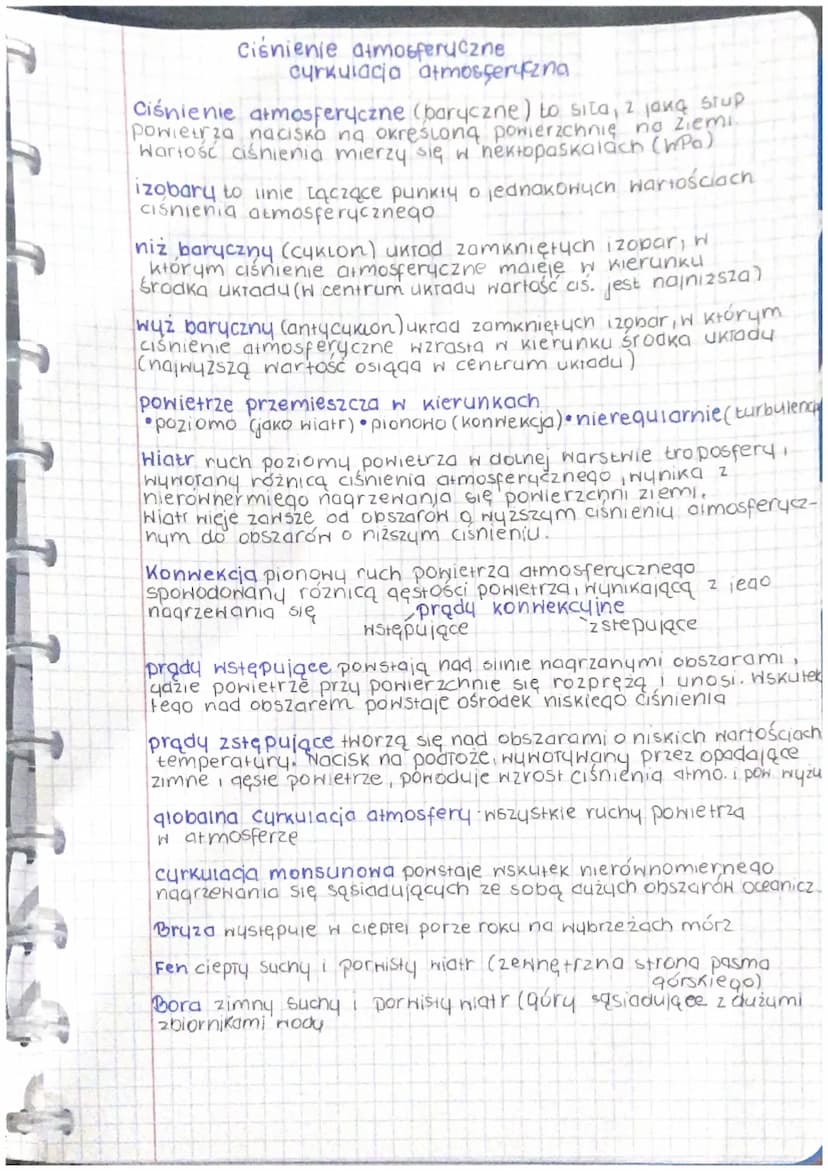 Ciśnienie atmosferyczne
cyrkulacja atmosferyczna
Ciśnienie atmosferyczne (baryczne) to siła, z jaką słup
powietrza naciska na określoną powierzchnię na Ziemi.
Wartość ciśnienia mierzy się w hektopaskalach (hPa)
izobary to linie łączące punkty o jednakowych wartościach
ciśnienia atmosferycznego
niż baryczny (cyklon) układ zamkniętych izobar, w
którym ciśnienie atmosferyczne maleje w kierunku
środka układu (w centrum układu wartość ciś. jest najniższa)
wyż baryczny (antycyklon) układ zamkniętych izobar, w którym
ciśnienie atmosferyczne wzrasta w kierunku środka układu
(najwyższą wartość osiąga w centrum układu)
powietrze przemieszcza w kierunkach
•poziomo (jako wiatr) •pionowo (konwekcja) •nieregularnie (turbulencja
Wiatr ruch poziomy powietrza w dolnej warstwie troposfery,
wywołany różnicą ciśnienia atmosferycznego, wynika z
nierównermiego nagrzewania się powierzchni ziemi.
Wiatr wieje zawsze od obszarów o wyższym ciśnieniu atmosferycz-
nym do obszarów o niższym ciśnieniu.
Konwekcja pionowy ruch powietrza atmosferycznego
spowodowany różnicą gęstości powietrza, wynikającą z jego
nagrzewania się prądy konwekcyjne
wstępujące zstępujące
prądy wstępujące powstają nad silnie nagrzanymi obszarami,
gdzie powietrze przy powierzchnie się rozpręża i unosi. Wskutek
tego nad obszarem powstaje ośrodek niskiego ciśnienia
prądy zstępujące tworzą się nad obszarami o niskich wartościach
temperatury. Nacisk na podłoże, wywoływany przez opadające
zimne i gęste powietrze, powoduje wzrost ciśnienia atmo. i pow wyżu
globalna cyrkulacja atmosfery wszystkie ruchy powietrza
w atmosferze
cyrkulacja monsunowa powstaje wskutek nierównomiernego
nagrzewania się sąsiadujących ze sobą dużych obszarów oceanicz.
Bryza występuje w ciepłej porze roku na wybrzeżach mórz
Fen ciepły suchy i porwisty wiatr (zewnętrzna strona pasma
górskiego)
Bora zimny suchy i porwisty wiatr (góry sąsiadujące z dużymi
zbiornikami wody